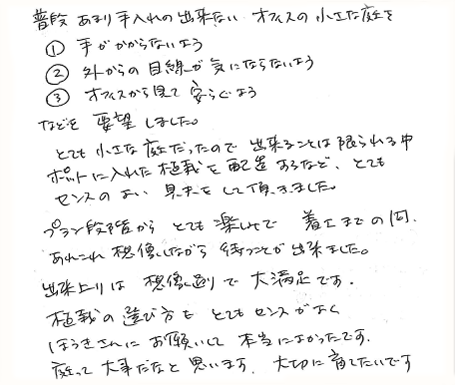 普段 あまり手入れの出来ない オフィスの小さな庭を
① 手がかからないよう
② 外からの目線が気にならないよう
③ オフィスから見て 安らぐよう
などを 要望しました。
とても 小さな庭だったので 出来ることは限られる中
ポットに入れた植栽を配置するなど、とても
センスのよい 工夫をして頂きました。
プラン段階から とても楽しみで 着工までの間、
あれこれ想像しながら 待つことが出来ました。
出来上りは 想像通りで 大満足です。
植栽の選び方も とてもセンスがよく
ほうきさんに お願いして 本当によかったです。
庭って 大事だなと 思います。 大切に育てたいです